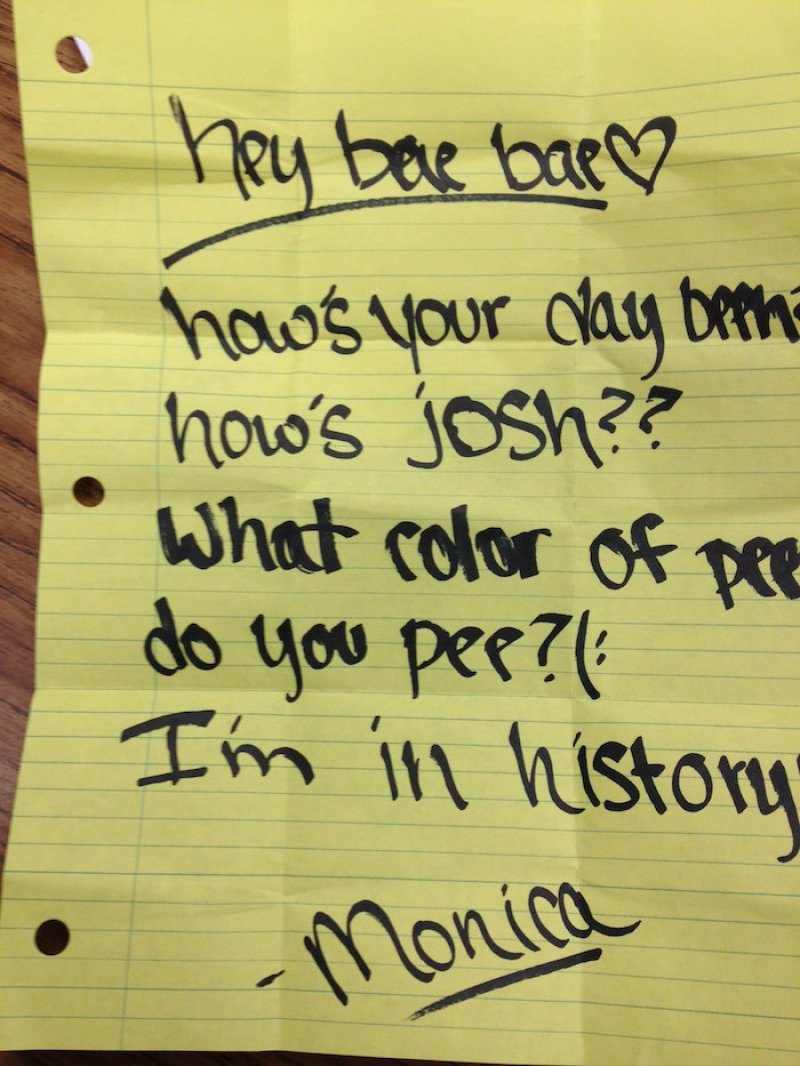 hey bae bae♡
how's your day been?
how's josh??
What color of pee
do you pee?(:
I'm in history
- Monica